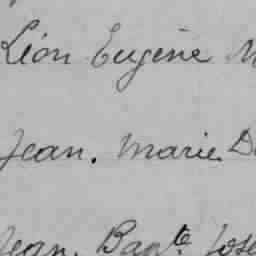 Léon Eugène M
Jean. Marie D
Jean. Bapte Jose